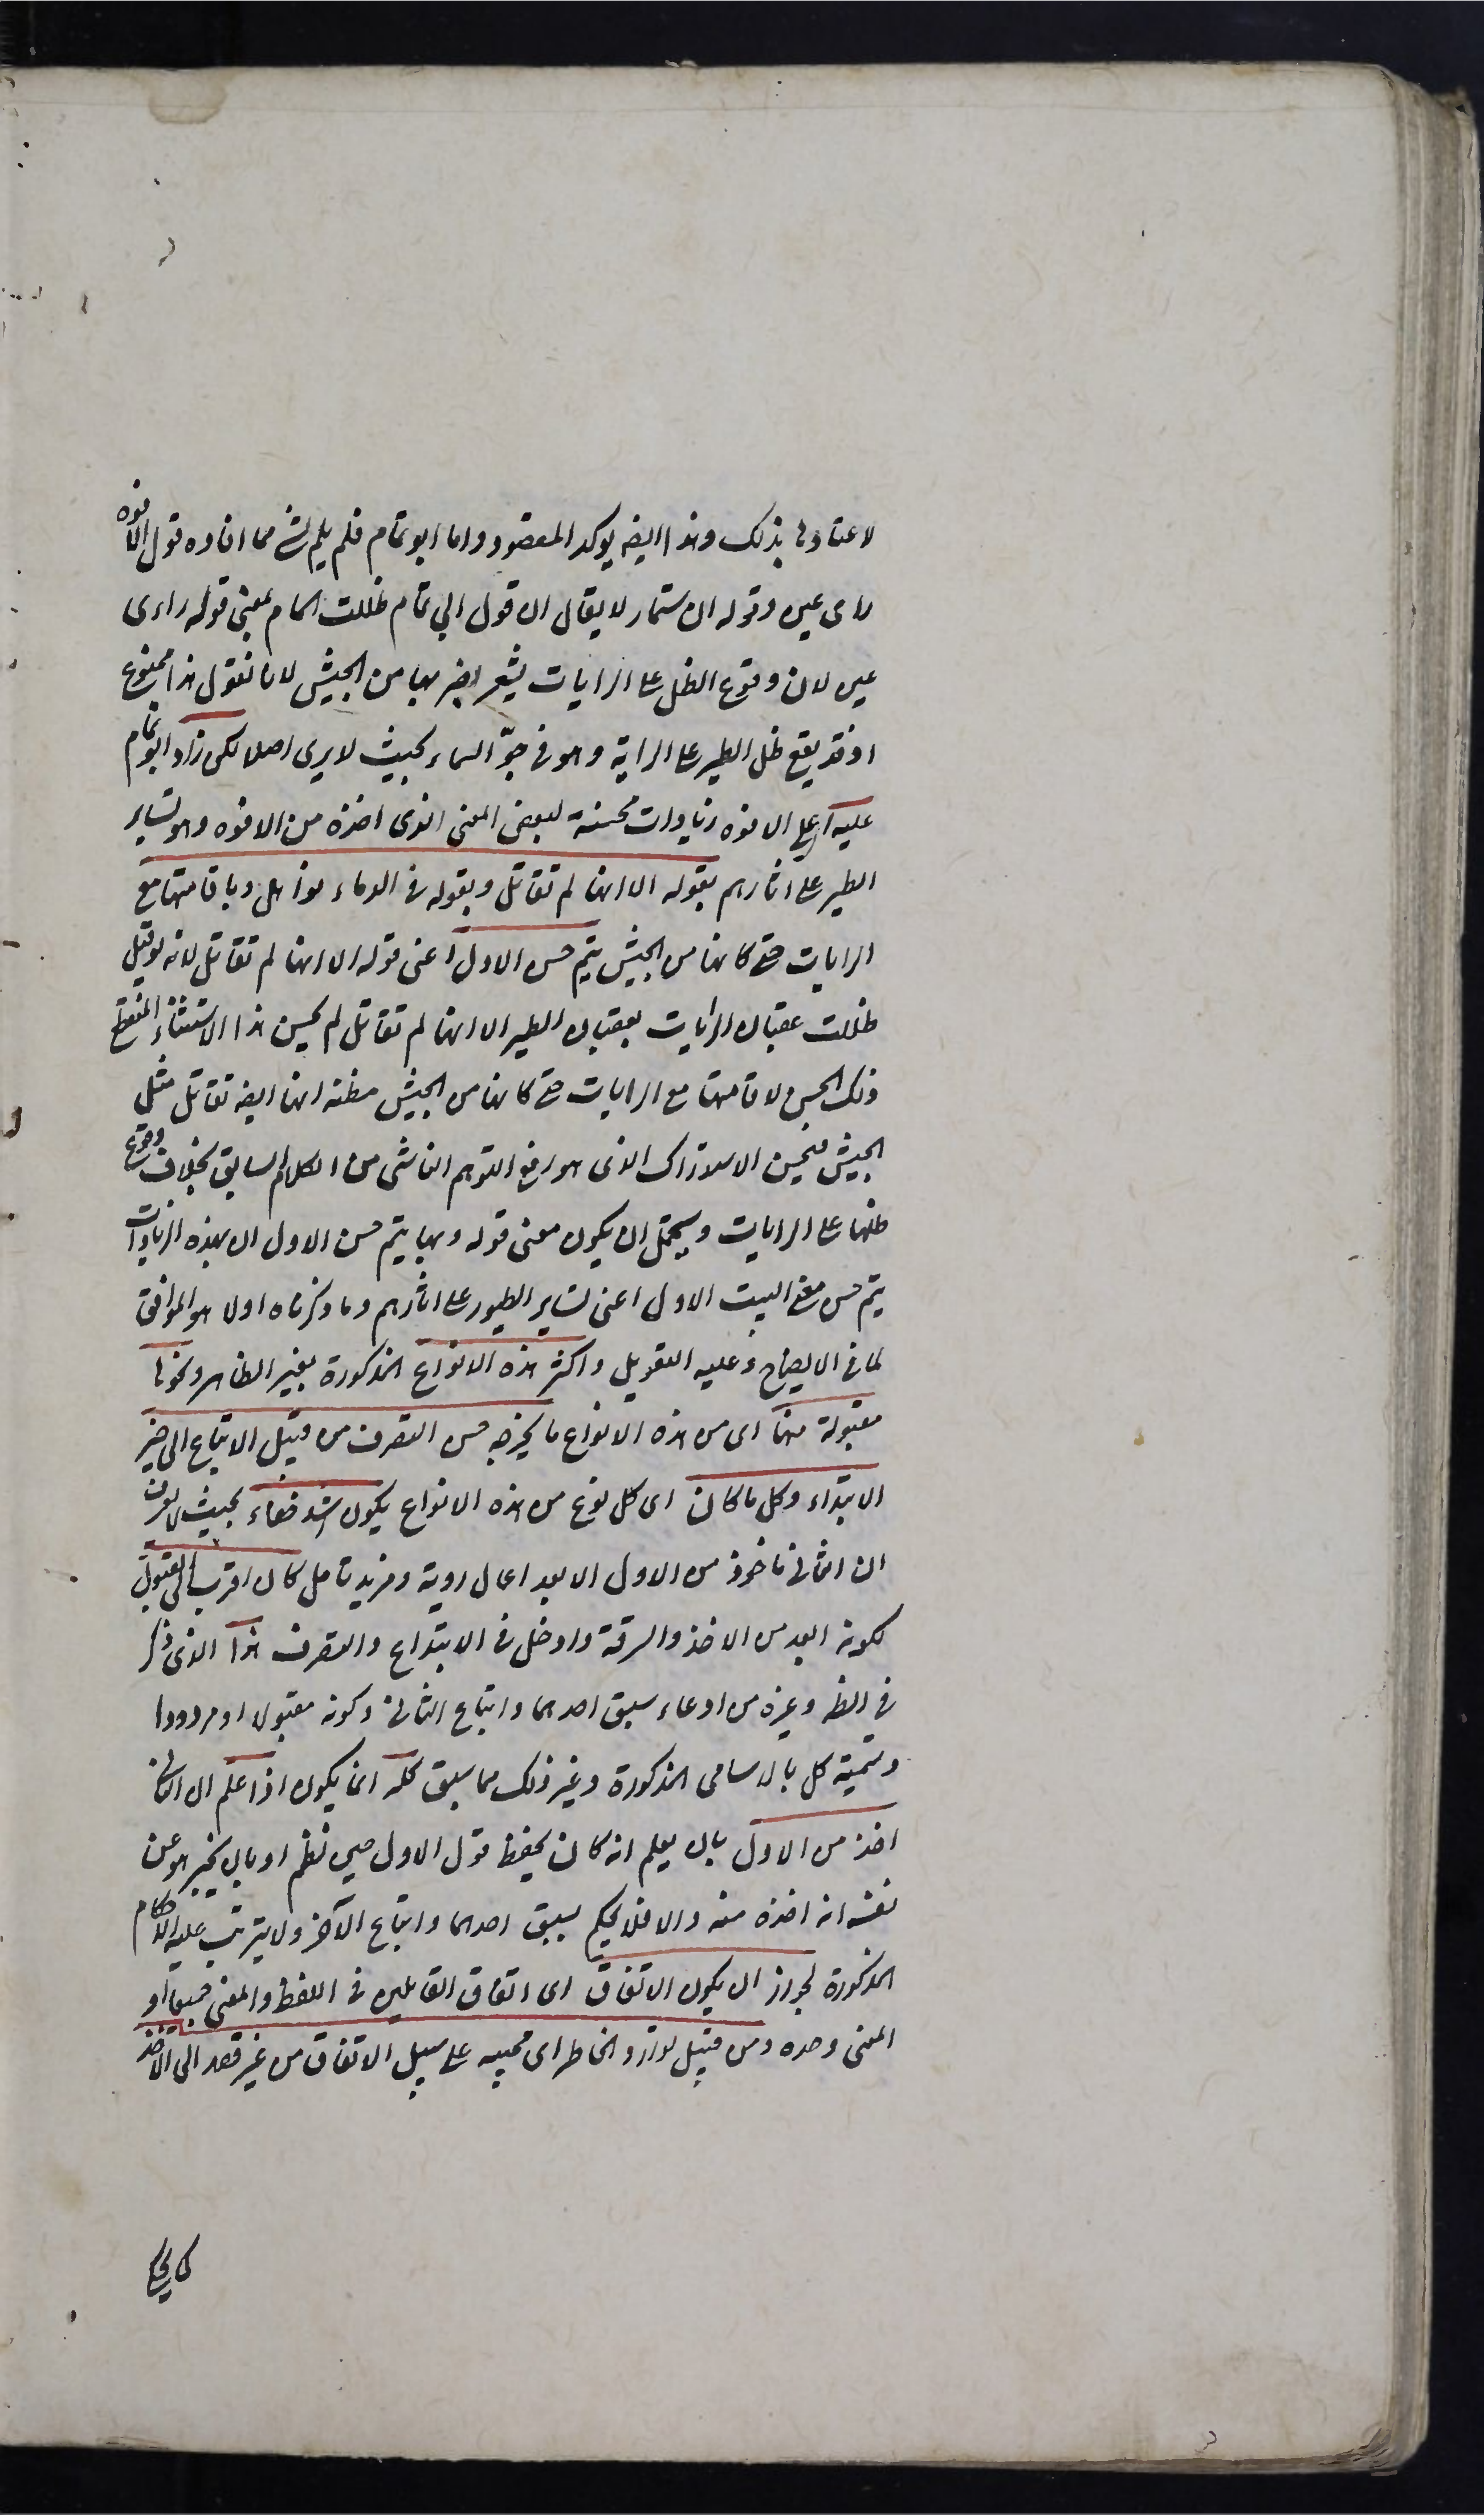 لاعتادها بذلك وهذا ايضه يوكد المقصود واما ابو تمام فلم يلم بشئ مما افاده قول الافوه
راى عين وقوله ان ستمار لا يقال ان قول ابي تمام ظللت المام بمعنى قوله راى
عين لان وقوع الظل على الرايات يشعر بقربها من الجيش لانا نقول هذا ممنوع
اذ قد يقع ظل الطير على الراية وهو في جوّ السماء بحيث لا يرى اصلا لكن زاد ابو تمام
عليه اى على الافوه زيادات محسنة لبعض المعنى الذى اخذه من الافوه وهو تساير
الطير على اثارهم بقوله الا انها لم تقاتل وبقوله في الدماء نواهل وباقامتها مع
الرايات حتى كانها من الجيش يتم حسن الاول اعنى قوله الا انها لم تقاتل لانه لو قيل
ظللت عقبان الرايات بعقبان الطير الا انها لم تقاتل لم يحسن هذا الاستثناء المنقطع
ذلك الحسن لاقامتها مع الرايات حتى كانها من الجيش مظنة انها ايضه تقاتل مثل
الجيش فيحسن الاستدراك الذى هو رفع التوهم الناشى من الكلام السابق بخلاف وقوع
ظلها على الرايات ويحتمل ان يكون معنى قوله وبها يتم حسن الاول ان بهذه الزيادات
يتم حسن معنى البيت الاول اعنى تساير الطيور على اثارهم وما ذكرناه اولا هو الموافق
لما في الايضاح وعليه التعويل واكثر هذه الانواع المذكورة لغير الظاهر ونحوها
مقبولة منها اى من هذه الانواع ما يخرجه حسن التصرف من قبيل الاتباع الى حيز
الابتداء وكل ما كان اى كل نوع من هذه الانواع يكون اشد خفاء بحيث لا يعرف
ان الثانى ماخوذ من الاول الا بعد اعمال روية ومزيد تامل كان اقرب الى القبول
لكونه ابعد من الاخذ والسرقة وادخل في الابتداع والتصرف هذا الذى ذكر
في الظ وغيره من ادعاء سبق احدهما واتباع الثانى وكونه مقبولا او مردودا
وتسمية كل بالاسامى المذكورة وغير ذلك مما سبق كله انما يكون اذا علم ان الثانى
اخذ من الاول بان يعلم انه كان يحفظ قول الاول حين نظم او بان يخبر هو عن
نفسه انه اخذه منه والا فلا يحكم بسبق احدهما واتباع الآخر ولا يترتب عليه الاحكام
المذكورة لجواز ان يكون الاتفاق اى اتفاق القائلين في اللفظ والمعنى جميعا او
المعنى وحده ومن قبيل توارد الخاطر اى مجيئه على سبيل الاتفاق من غير قصد الى الاخذ
كما يحكى